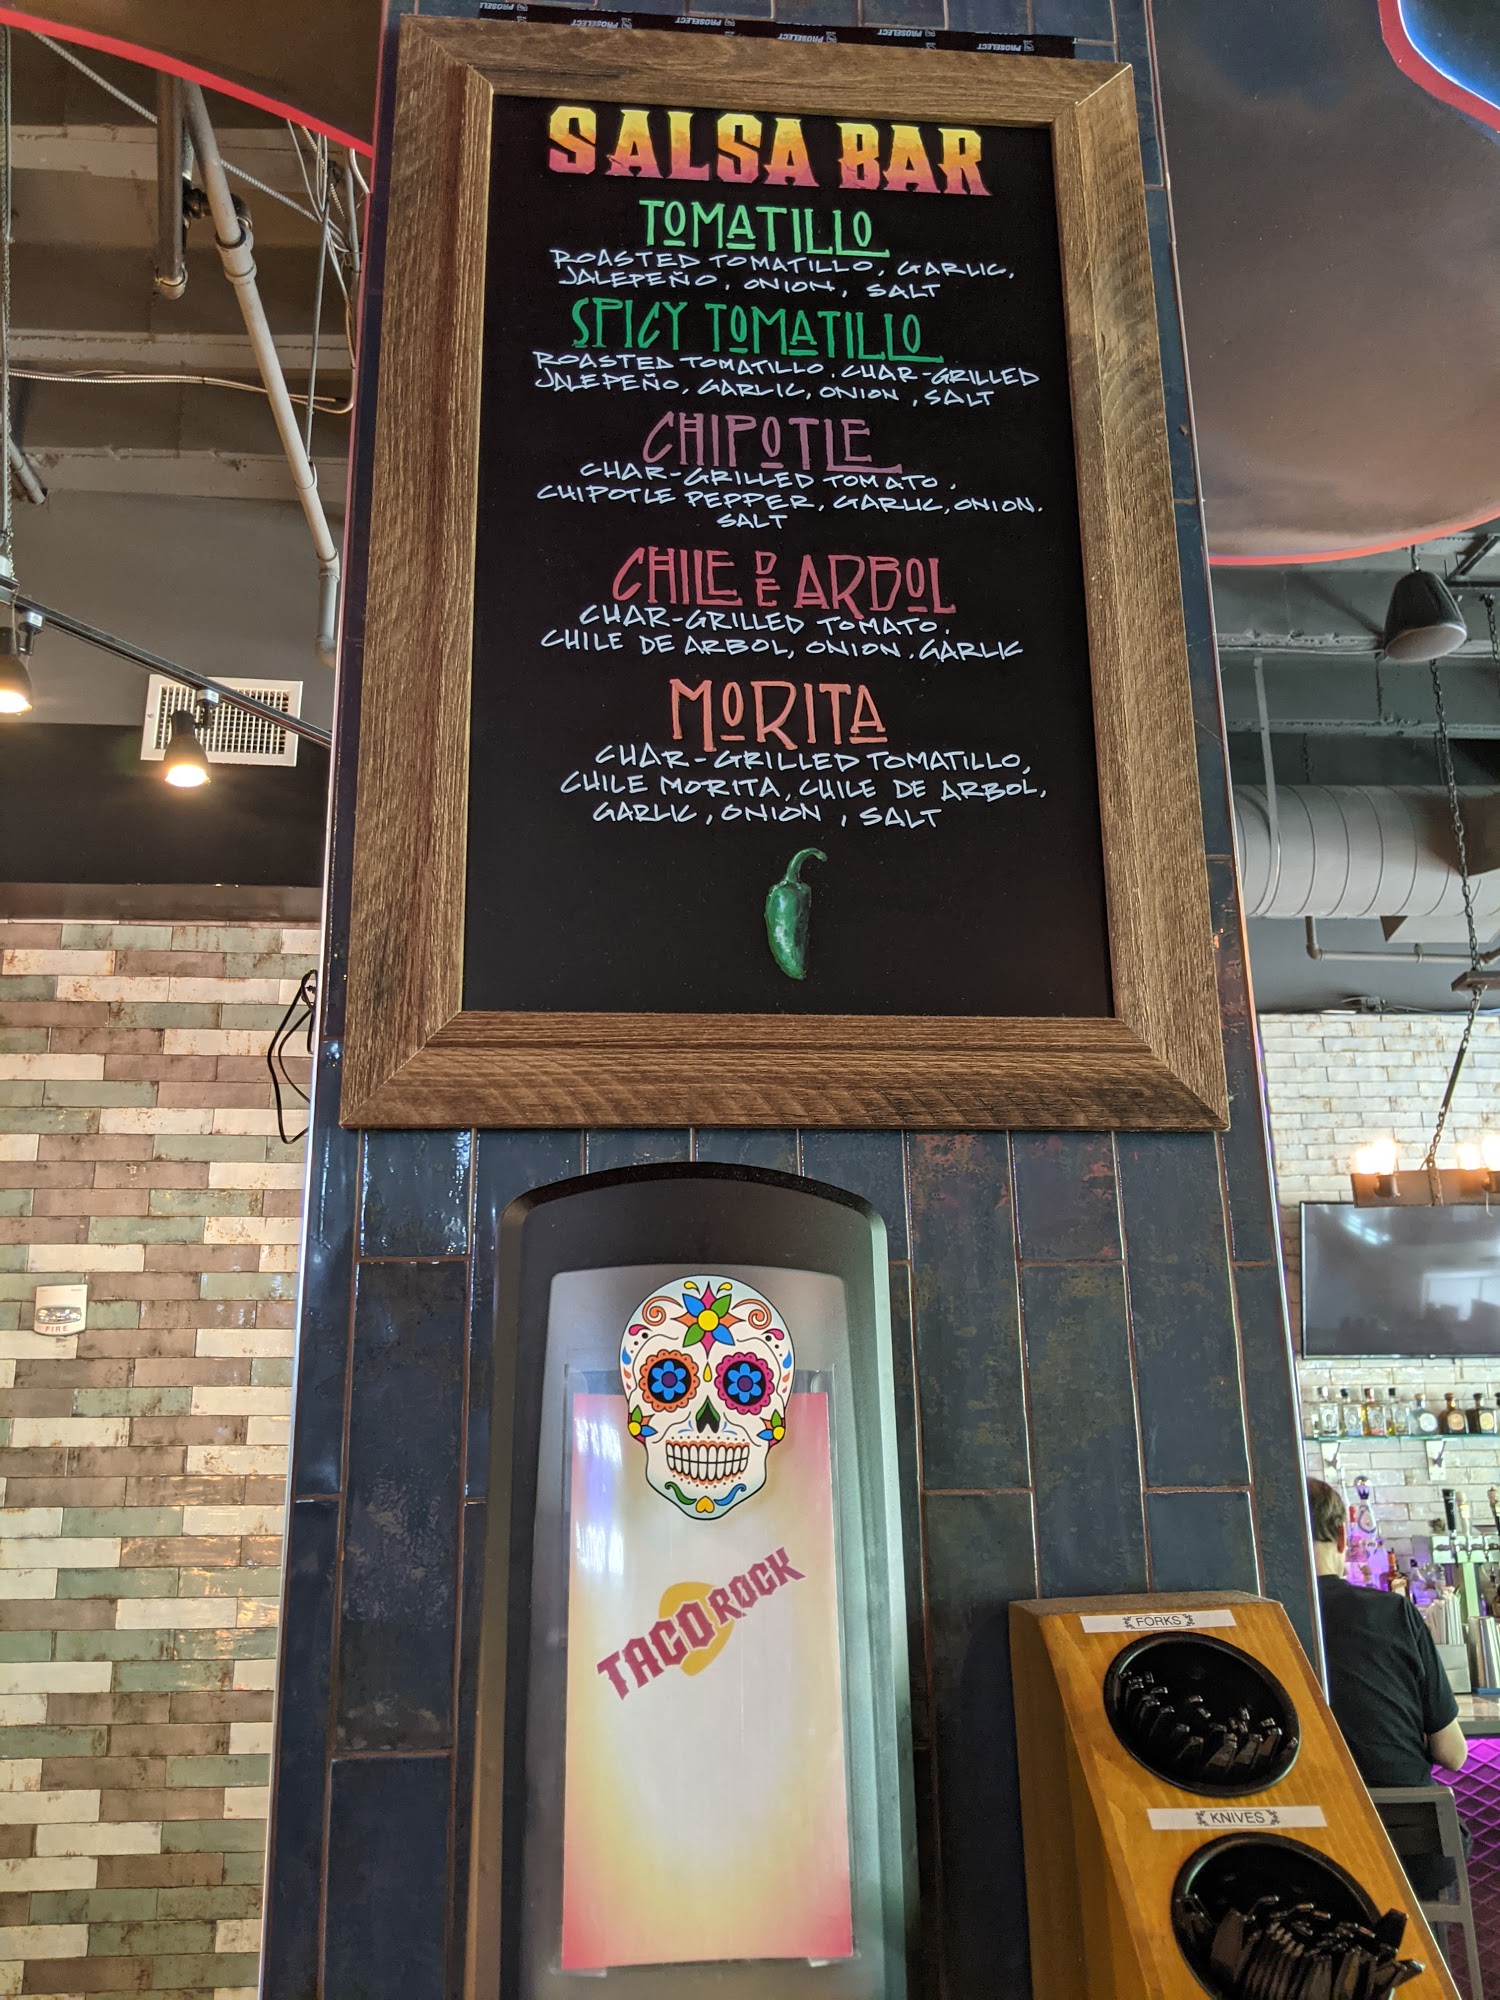 PROSELECT PROSELECT PROSELECT PROSELECT
SALSA BAR
TOMATILLO
ROASTED TOMATILLO, GARLIC,
JALEPEÑO, ONION, SALT
SPICY TOMATILLO
ROASTED TOMATILLO, CHAR-GRILLED
JALEPEÑO, GARLIC, ONION, SALT
CHIPOTLE
CHAR-GRILLED TOMATO,
CHIPOTLE PEPPER, GARLIC, ONION,
SALT
CHILE DE ARBOL
CHAR-GRILLED TOMATO,
CHILE DE ARBOL, ONION, GARLIC
MORITA
CHAR-GRILLED TOMATILLO,
CHILE MORITA, CHILE DE ARBOL,
GARLIC, ONION, SALT
FIRE
TACO ROCK
FORKS
KNIVES